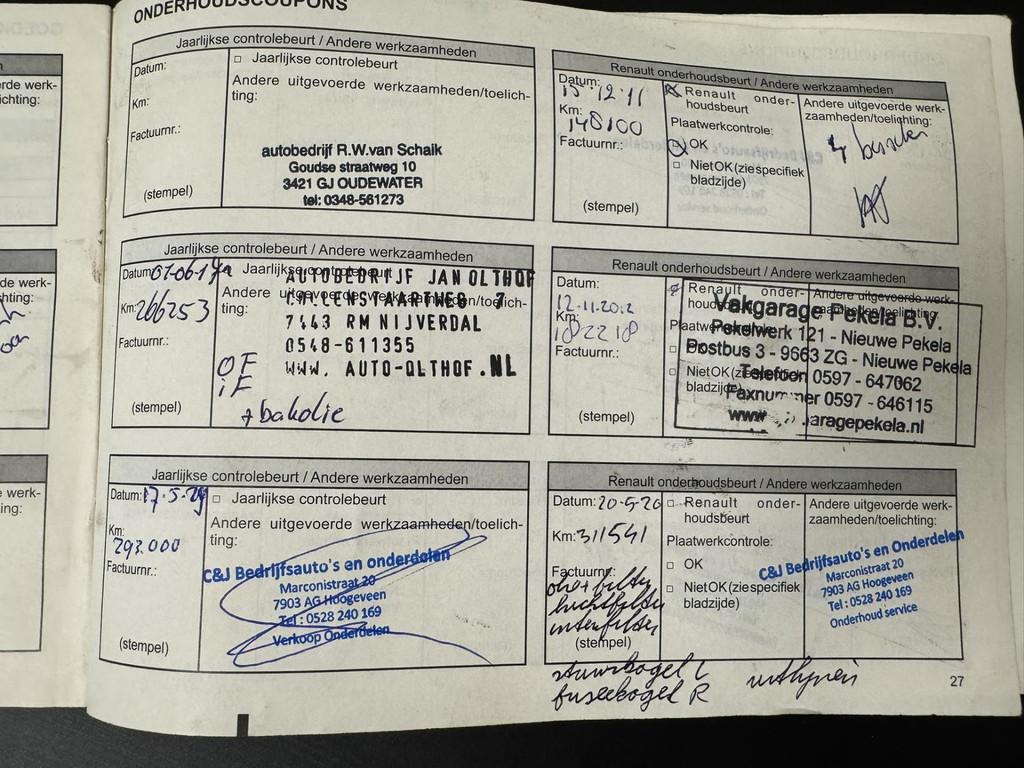 ONDERHOUDSCOUPONS
Jaarlijkse controlebeurt / Andere werkzaamheden
Datum:
□ Jaarlijkse controlebeurt
Andere uitgevoerde werkzaamheden/toelich-
ting:
Km:
Factuurnr.:
autobedrijf R.W.van Schaik
Goudse straatweg 10
3421 GJ OUDEWATER
tel: 0348-561273
(stempel)
Renault onderhoudsbeurt / Andere werkzaamheden
Datum: 15-12-11
Renault onder-
houdsbeurt
Andere uitgevoerde werk-
zaamheden/toelichting:
Km: 148100
Plaatwerkcontrole:
Factuurnr.:
OK
□ Niet OK (zie specifiek
bladzijde)
(stempel)
Jaarlijkse controlebeurt / Andere werkzaamheden
Datum: 07-06-17
Jaarlijkse controlebeurt
Andere uitgevoerde werkzaamheden/toelich-
ting:
Km: 266253
Factuurnr.:
AUTOBEDRIJF JAN OLTHOF
CALLENSVAARTWEG 7
7443 RM NIJVERDAL
0548-611355
WWW. AUTO-OLTHOF.NL
OF
iF
+ bakolie
(stempel)
Renault onderhoudsbeurt / Andere werkzaamheden
Datum:
12.11.2012
Renault onder-
Andere uitgevoerde werk-
Km:
182218
Factuurnr.:
□ Niet OK (zie
bladzijde)
Vakgarage Pekela B.V.
Pekelwerk 121 - Nieuwe Pekela
Postbus 3 - 9663 ZG - Nieuwe Pekela
Telefoon 0597 - 647062
Faxnummer 0597 - 646115
aragepekela.nl
(stempel)
Jaarlijkse controlebeurt / Andere werkzaamheden
Datum: 17.5.19
□ Jaarlijkse controlebeurt
Andere uitgevoerde werkzaamheden/toelich-
ting:
Km:
293.000
Factuurnr.:
C&J Bedrijfsauto's en onderdelen
Marconistraat 20
7903 AG Hoogeveen
Tel : 0528 240 169
Verkoop Onderdelen
(stempel)
Renault onderhoudsbeurt / Andere werkzaamheden
Datum: 20-5-20
□ Renault onder-
houdsbeurt
Andere uitgevoerde werk-
zaamheden/toelichting:
Km: 311541
Plaatwerkcontrole:
□ OK
□ Niet OK (zie specifiek
bladzijde)
Factuurnr.:
luchtfilter
interfilter
(stempel)
C&J Bedrijfsauto's en Onderdelen
Marconistraat 20
7903 AG Hoogeveen
Tel : 0528 240 169
Onderhoud service
stuurkogel L
fuseekogel R
uitlijnen
27